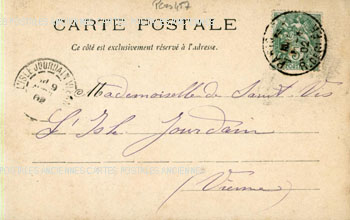 CARTE POSTALE
Ce côté est exclusivement réservé à l'adresse.
L'ISLE JOURDAIN
9
02
Mademoiselle de Saint Vis
L'Isle Jourdain
(Vienne)